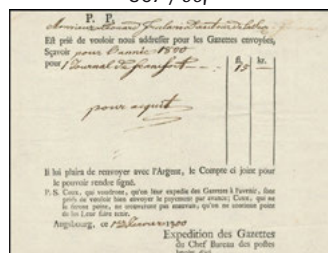 P. P.
Monsieur
Est prié de vouloir nous addresser pour les Gazettes envoyées,
Sçavoir pour l'année 1800
fl. kr.
pour 1 Journal de francfort 15
pour aquit
Il lui plaira de renvoyer avec l'Argent, le Compte ci joint pour
le pouvoir rendre signé.
P. S. Ceux, qui voudront, qu'on leur expedie des Gazettes à l'avenir, sont
priés de vouloir bien envoyer le payement par avance; Ceux, qui ne
le feront point, ne trouveront pas mauvais, qu'on ne continue point
de les Leur faire tenir.
Augsbourg, ce 1800
Expedition des Gazettes
du Chef Bureau des postes